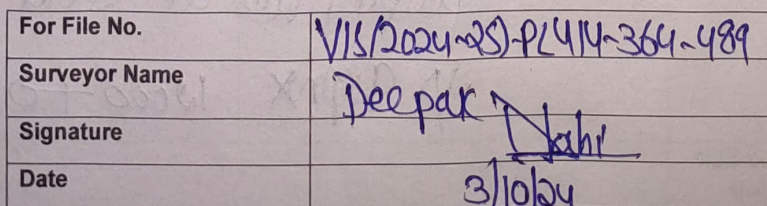 For File No. VIS(2024-25)-PL414-364-489
Surveyor Name Deepak
Signature Joshi
Date 3/10/24